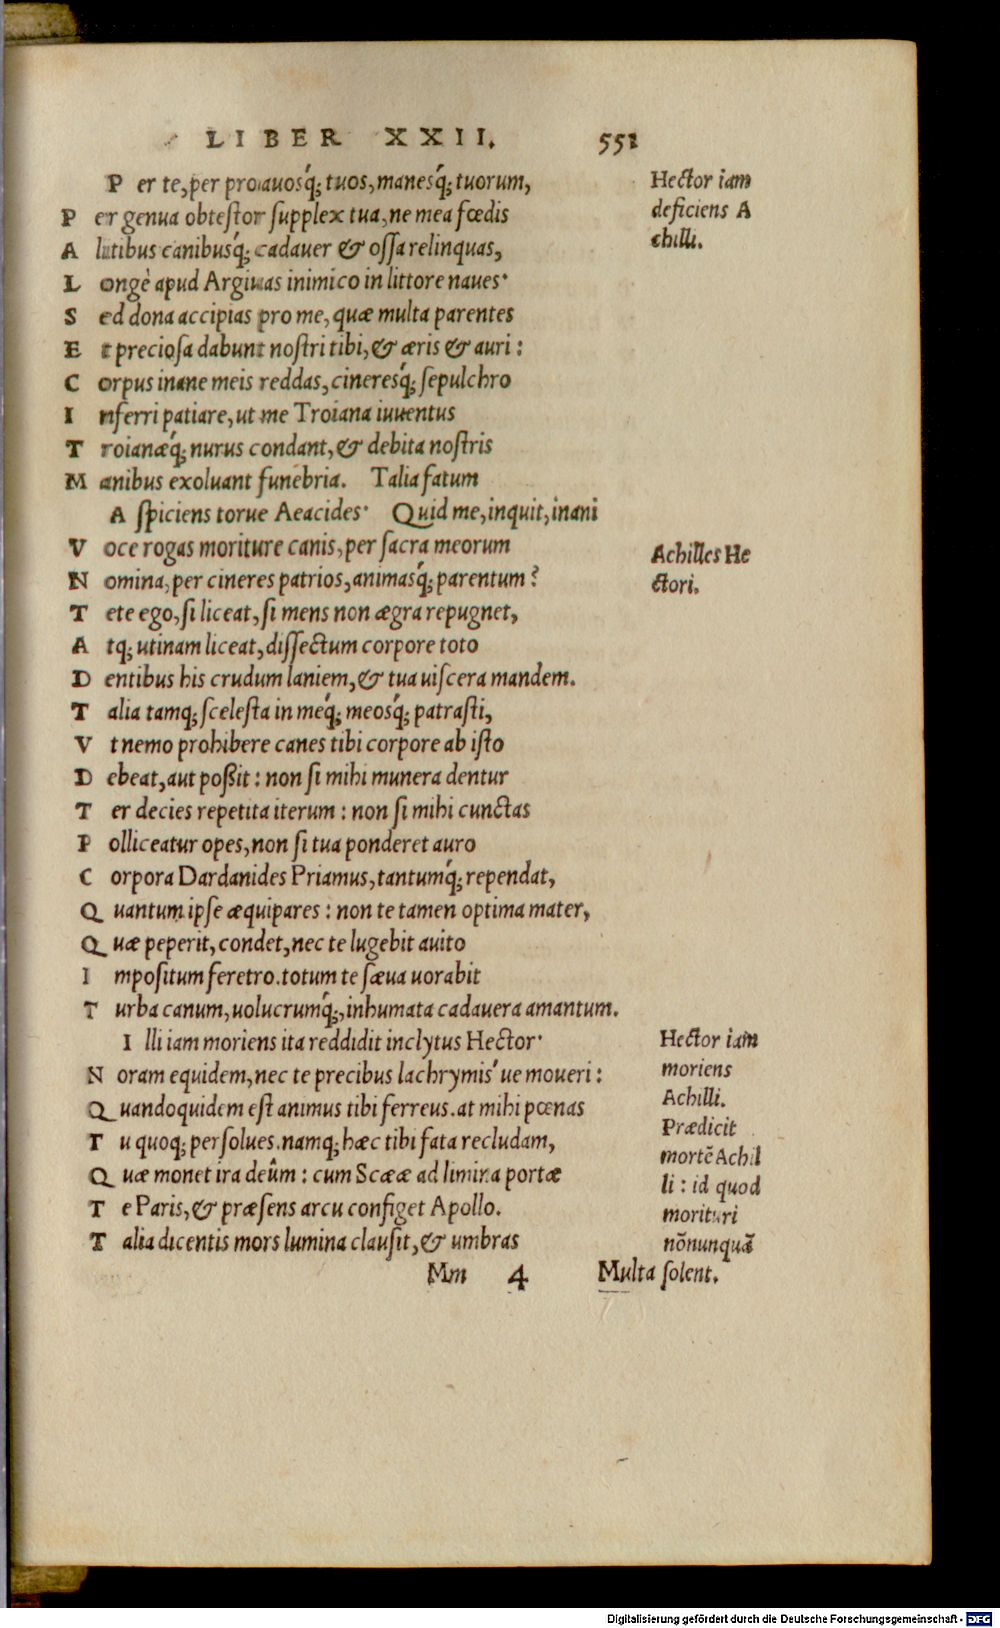 LIBER XXII. 551
Per te, per proauosq́; tuos, manesq́; tuorum,
Per genua obtestor supplex tua, ne mea fœdis
Alitibus canibusq́; cadauer & ossa relinquas,
Longè apud Argiuas inimico in littore naues·
Sed dona accipias pro me, quæ multa parentes
Et preciosa dabunt nostri tibi, & æris & auri:
Corpus inane meis reddas, cineresq́; sepulchro
Inferri patiare, ut me Troiana iuuentus
Troianæq́; nurus condant, & debita nostris
Manibus exoluant funebria. Talia fatum
Aspiciens torue Aeacides· Quid me, inquit, inani
Voce rogas moriture canis, per sacra meorum
Nomina, per cineres patrios, animasq́; parentum?
Tete ego, si liceat, si mens non ægra repugnet,
Atq; utinam liceat, dissectum corpore toto
Dentibus his crudum laniem, & tua uiscera mandem.
Talia tamq; scelesta in meq́; meosq́; patrasti,
Vt nemo prohibere canes tibi corpore ab isto
Debeat, aut poßit: non si mihi munera dentur
Ter decies repetita iterum: non si mihi cunctas
Polliceatur opes, non si tua ponderet auro
Corpora Dardanides Priamus, tantumq́; rependat,
Quantum ipse æquipares: non te tamen optima mater,
Quæ peperit, condet, nec te lugebit auito
Impositum feretro. totum te sæua uorabit
Turba canum, uolucrumq́;, inhumata cadauera amantum.
Illi iam moriens ita reddidit inclytus Hector·
Noram equidem, nec te precibus lachrymis'ue moueri:
Quandoquidem est animus tibi ferreus. at mihi pœnas
Tu quoq; persolues. namq; hæc tibi fata recludam,
Quæ monet ira deûm: cum Scææ ad limina portæ
Te Paris, & præsens arcu configet Apollo.
Talia dicentis mors lumina clausit, & umbras
Mm 4 Multa
Hector iam
deficiens A
chilli.
Achilles He
ctori.
Hector iam
moriens
Achilli.
Prædicit
mortẽ Achil
li: id quod
morituri
nõnunquã
solent.
Digitalisierung gefördert durch die Deutsche Forschungsgemeinschaft - DFG